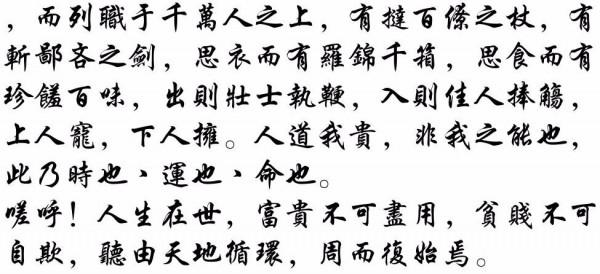 ，而列職于千萬人之上，有撻百僚之杖，有
斬鄙吝之劍，思衣而有羅錦千箱，思食而有
珍饈百味，出則壯士執鞭，入則佳人捧觴，
上人寵，下人擁。人道我貴，非我之能也，
此乃時也、運也、命也。
嗟呼！人生在世，富貴不可盡用，貧賤不可
自欺，聽由天地循環，周而復始焉。